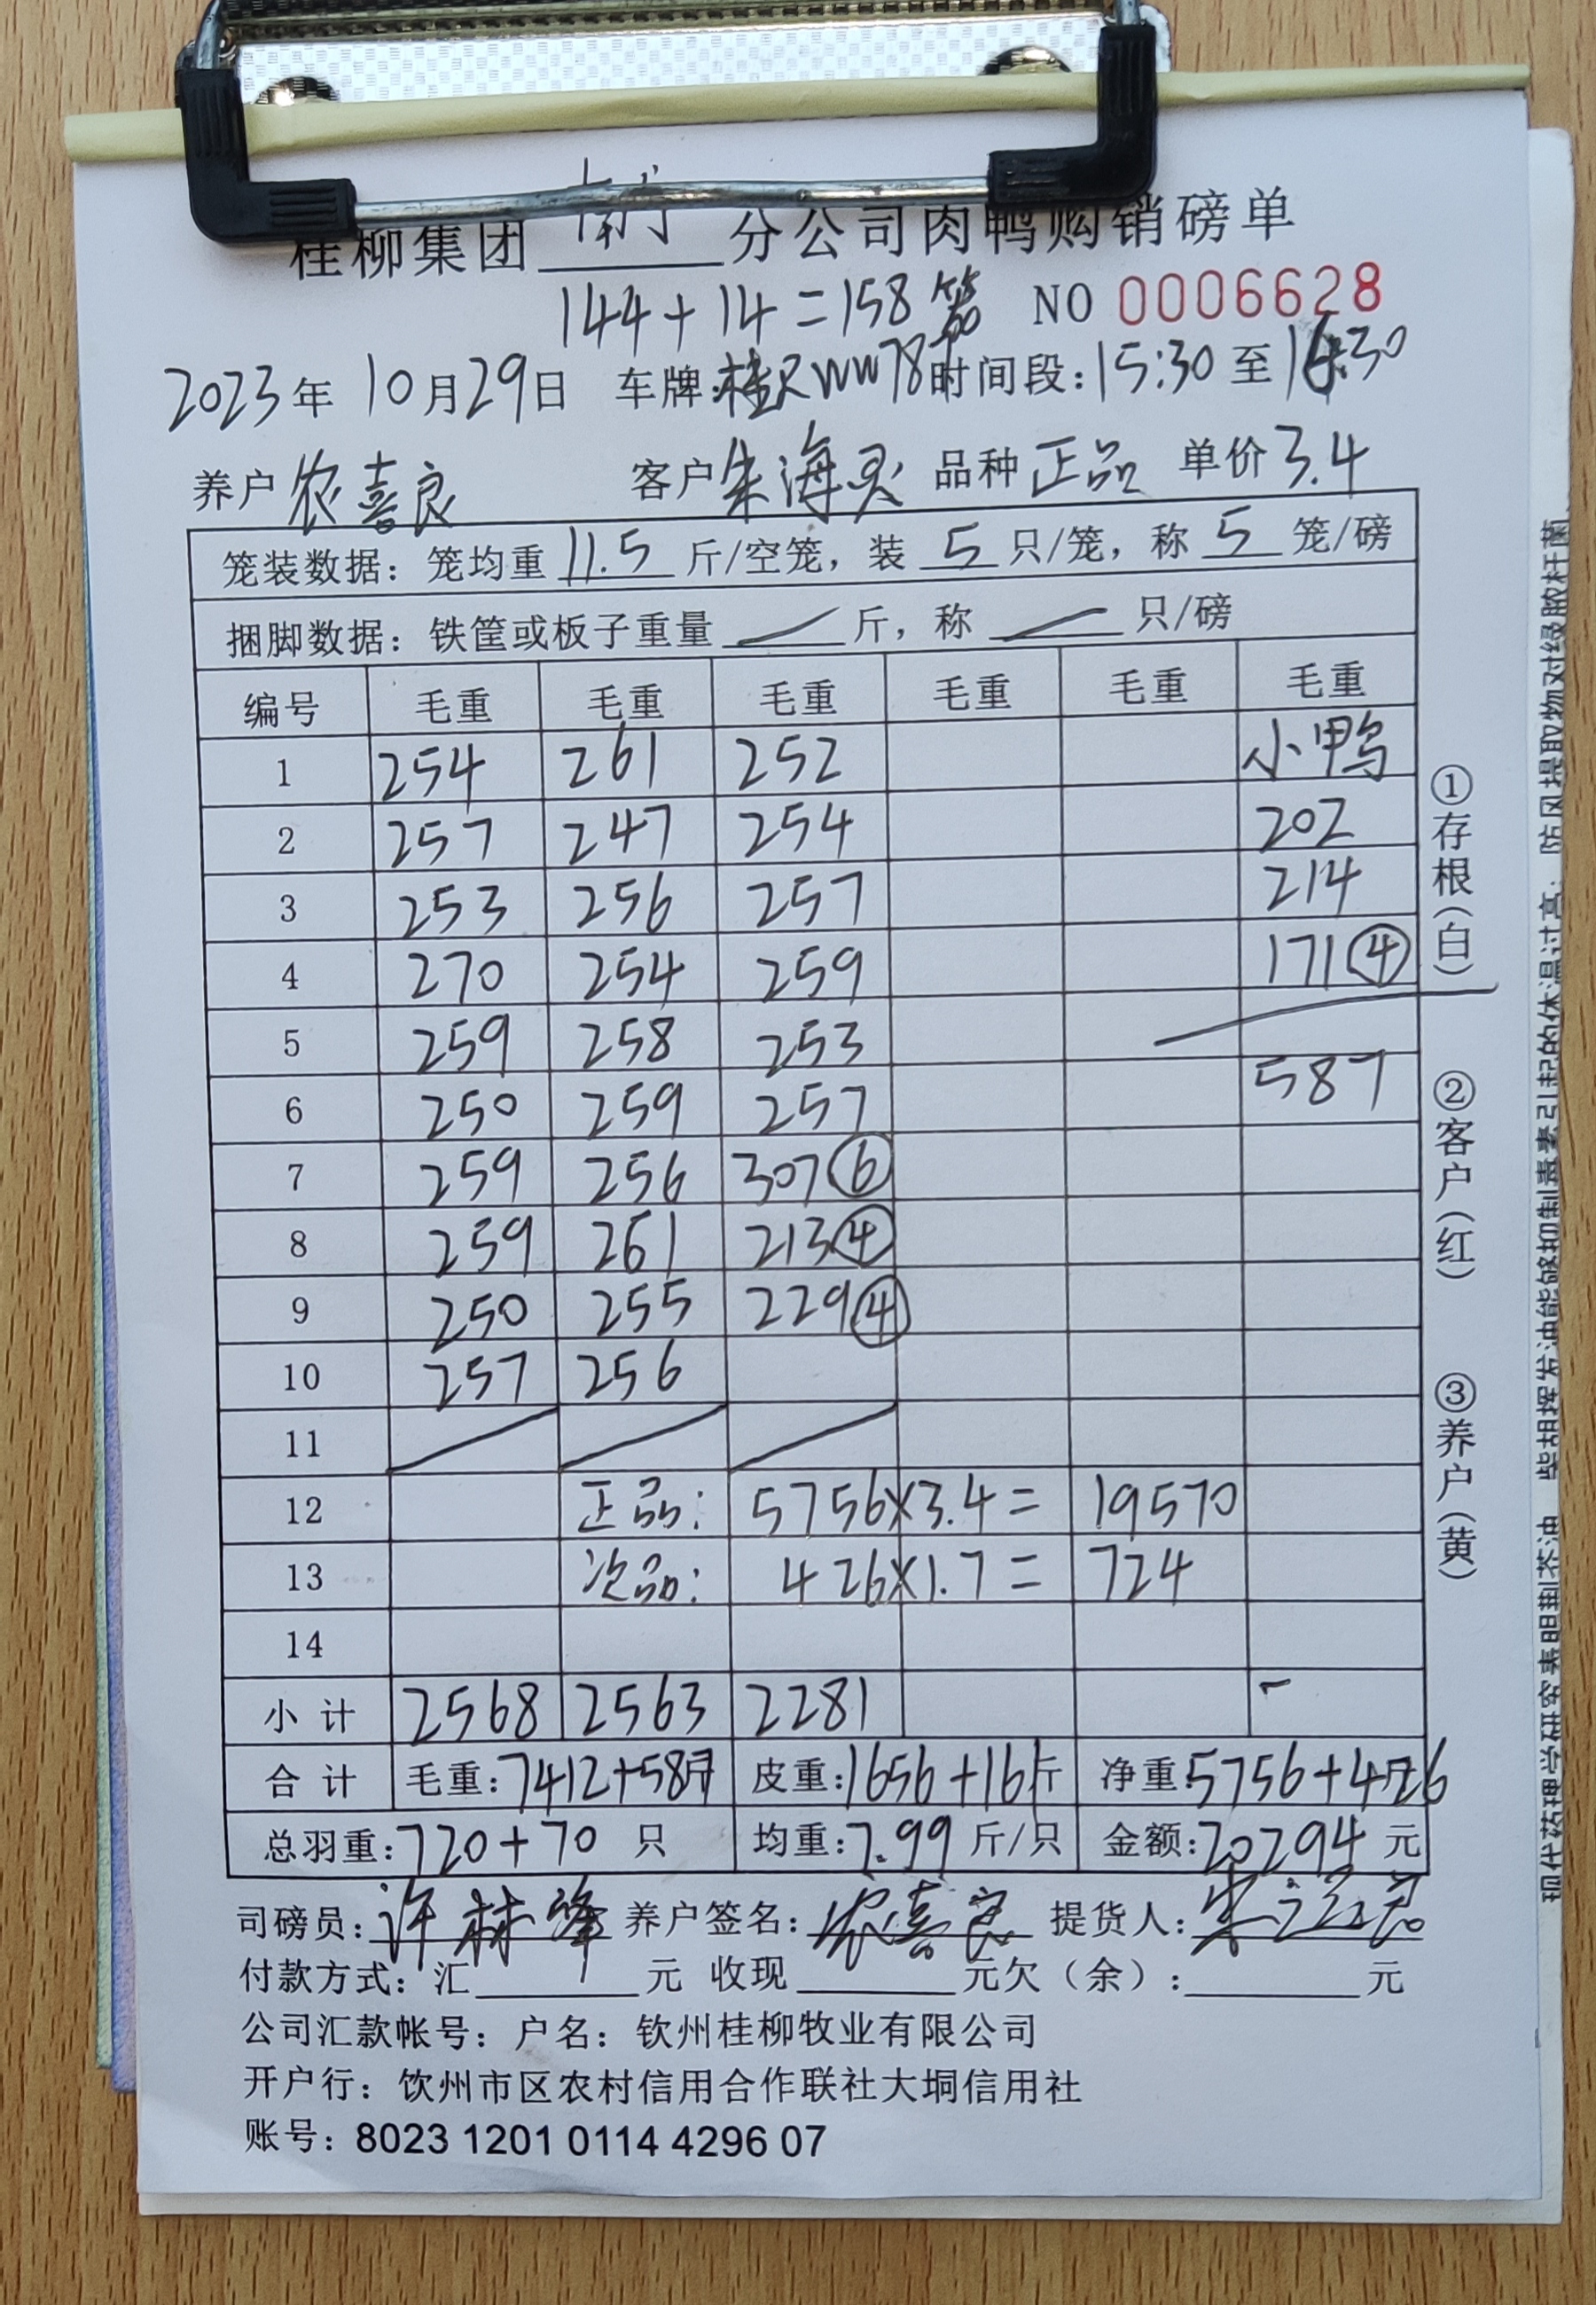 桂柳集团 南宁 分公司肉鸭购销磅单
144+14=158笼 NO 0006628
2023年10月29日 车牌: 时间段:15:30至16:30
养户 农喜良 客户 朱海灵 品种 正品 单价 3.4
笼装数据: 笼均重 11.5 斤/空笼, 装 5 只/笼, 称 5 笼/磅
捆脚数据: 铁筐或板子重量 斤, 称 只/磅
编号 毛重 毛重 毛重 毛重 毛重 毛重
1 254 261 252 小鸭
2 257 247 254 202
3 253 256 257 214
4 270 254 259 171④
5 259 258 253
6 250 259 257 587
7 259 256 307⑥
8 259 261 213④
9 250 255 229④
10 257 256
11
12 正品: 5756×3.4= 19570
13 次品: 426×1.7= 724
14
小计 2568 2563 2281 -
合计 毛重:7412+587斤 皮重:1656+161斤 净重:5756+426
总羽重:720+70 只 均重:7.99 斤/只 金额:20294 元
司磅员:许林峰 养户签名:农喜良 提货人:
付款方式: 汇 元 收现 元欠(余): 元
公司汇款帐号: 户名: 钦州桂柳牧业有限公司
开户行: 饮州市区农村信用合作联社大垌信用社
账号: 8023 1201 0114 4296 07
①存根(白)
②客户(红)
③养户(黄)